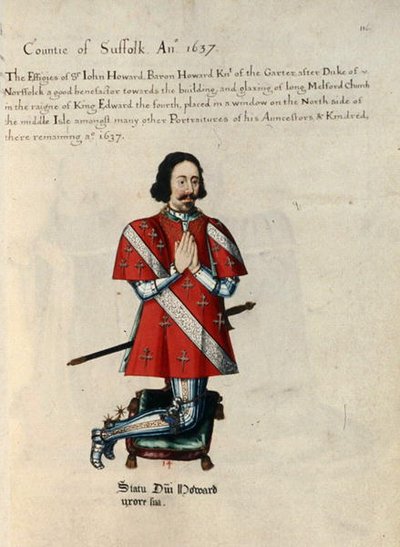 116.
Countie of Suffolk. Anº 1637.
The Effigies of Sr Iohn Howard, Baron Howard Knt of the Garter, after Duke of
Norffolck a good benefactor towards the building, and glazing of long Melford Church
in the raigne of King Edward the fourth, placed in a window on the North side of
the middle Isle amongst many other Portraitures of his Auncestors, & Kindred,
there remaining aº 1637.
14
Statu Dñi Howard
uxore sua.